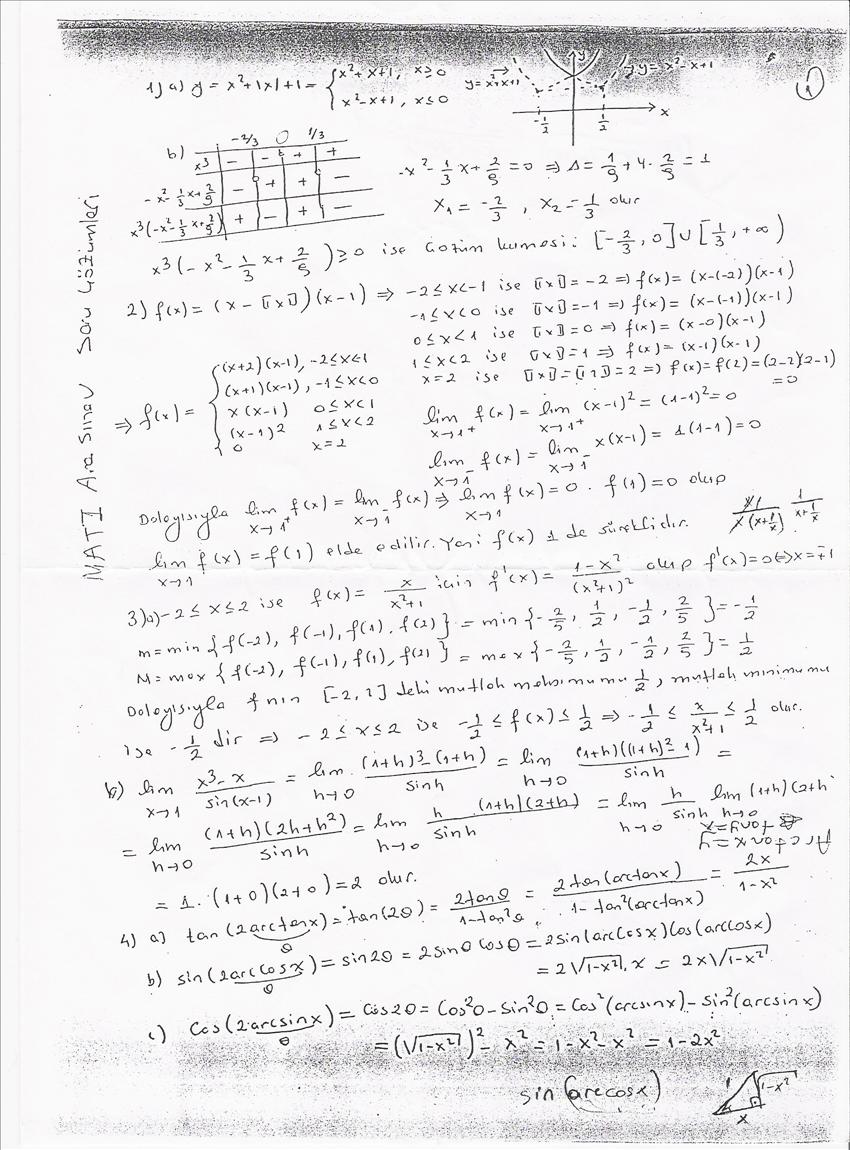 MAT I Ara Sınav Soru Çözümleri
1
1) a) y = x²+|x|+1 = { x²+x+1, x≥0
x²-x+1, x≤0
y=x²+x+1
y
y=x²-x+1
-1/2 1/2 x
b) -2/3 0 1/3
x³ - - + +
-x²-1/3x+2/9 - + + -
x³(-x²-1/3x+2/9) + - + -
-x²-1/3x+2/9=0 ⇒ Δ=1/9+4·2/9=1
x₁=-2/3, x₂=1/3 olur
x³(-x²-1/3x+2/9)≥0 ise çözüm kümesi: [-2/3, 0]∪[1/3, +∞)
2) f(x)=(x-⟦x⟧)(x-1) ⇒ -2≤x<-1 ise ⟦x⟧=-2 ⇒ f(x)=(x-(-2))(x-1)
-1≤x<0 ise ⟦x⟧=-1 ⇒ f(x)=(x-(-1))(x-1)
0≤x<1 ise ⟦x⟧=0 ⇒ f(x)=(x-0)(x-1)
1≤x<2 ise ⟦x⟧=1 ⇒ f(x)=(x-1)(x-1)
x=2 ise ⟦x⟧=⟦2⟧=2 ⇒ f(x)=f(2)=(2-2)(2-1)
=0
⇒ f(x)= { (x+2)(x-1), -2≤x<1
(x+1)(x-1), -1≤x<0
x(x-1) 0≤x<1
(x-1)² 1≤x<2
0 x=2
lim x→1⁺ f(x)=lim x→1⁺ (x-1)²=(1-1)²=0
lim x→1⁻ f(x)=lim x→1⁻ x(x-1)=1(1-1)=0
Dolayısıyla lim x→1⁺ f(x)=lim x→1⁻ f(x) ⇒ lim x→1 f(x)=0. f(1)=0 olup
x·1/x(x+1/x) 1/x+1/x
lim x→1 f(x)=f(1) elde edilir. Yani f(x) 1 de süreklidir.
3) a) -2≤x≤2 ise f(x)=x/x²+1 için f'(x)=1-x²/(x²+1)² olup f'(x)=0⇔x=∓1
m=min{f(-2), f(-1), f(1), f(2)}=min{-2/5, 1/2, -1/2, 2/5}=-1/2
M=max{f(-2), f(-1), f(1), f(2)}=max{-2/5, 1/2, -1/2, 2/5}=1/2
Dolayısıyla f nin [-2, 2] deki mutlak maksimumu 1/2, mutlak minimumu
ise -1/2 dir ⇒ -2≤x≤2 ise -1/2≤f(x)≤1/2 ⇒ -1/2≤x/x²+1≤1/2 olur.
b) lim x→1 x³-x/sin(x-1) = lim h→0 (1+h)³-(1+h)/sinh = lim h→0 (1+h)((1+h)²-1)/sinh =
= lim h→0 (1+h)(2h+h²)/sinh = lim h→0 h (1+h)(2+h)/sinh = lim h→0 h/sinh lim h→0 (1+h)(2+h
tany=x
Arctanx=y
= 1·(1+0)(2+0)=2 olur.
4) a) tan(2arctanx)=tan(2θ)=2tanθ/1-tan²θ = 2tan(arctanx)/1-tan²(arctanx) = 2x/1-x²
θ
b) sin(2arccosx)=sin2θ=2sinθcosθ=2sin(arccosx)cos(arccosx)
θ
=2√1-x².x = 2x√1-x²
c) Cos(2arcsinx)=Cos2θ=Cos²θ-Sin²θ=Cos²(arcsinx)-Sin²(arcsinx)
θ
=(√1-x²)²-x²=1-x²-x²=1-2x²
sin(arccosx)
1 √1-x²
x